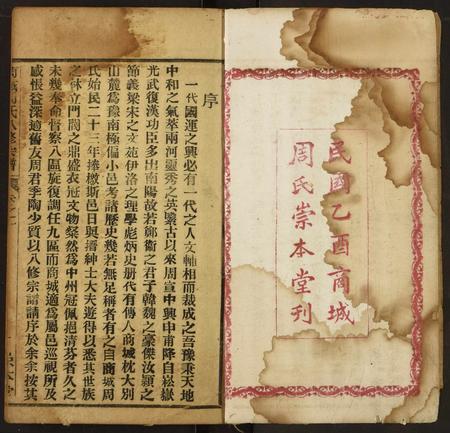 民國乙酉商城
周氏崇本堂刊
序
一代國運之興必有一代之人文軸相而裁成之吾豫秉天地
中和之氣萃兩河靈秀之英繄古以來周宣中興申甫降自崧嶽
光武復漢功臣多出南陽故若鄭衞之君子韓魏之豪傑汝潁之
節義梁宋之文苑伊洛之理學彪炳史册代有傳人商城枕大別
山麓為豫南極偏小邑考諸歷史幾若無足稱者有之自商城周
氏始民二十三年捧檄斯邑日與搢紳士大夫遊得以悉其世族
之林立門閥之鼎盛衣冠文物粲然為中州冠佩挹清芬者久之
未幾奉命督察八區旋復調任九區而商城適為屬邑巡視所及
感悵益深適舊友周君季陶少質以八修宗譜請序於余余按其